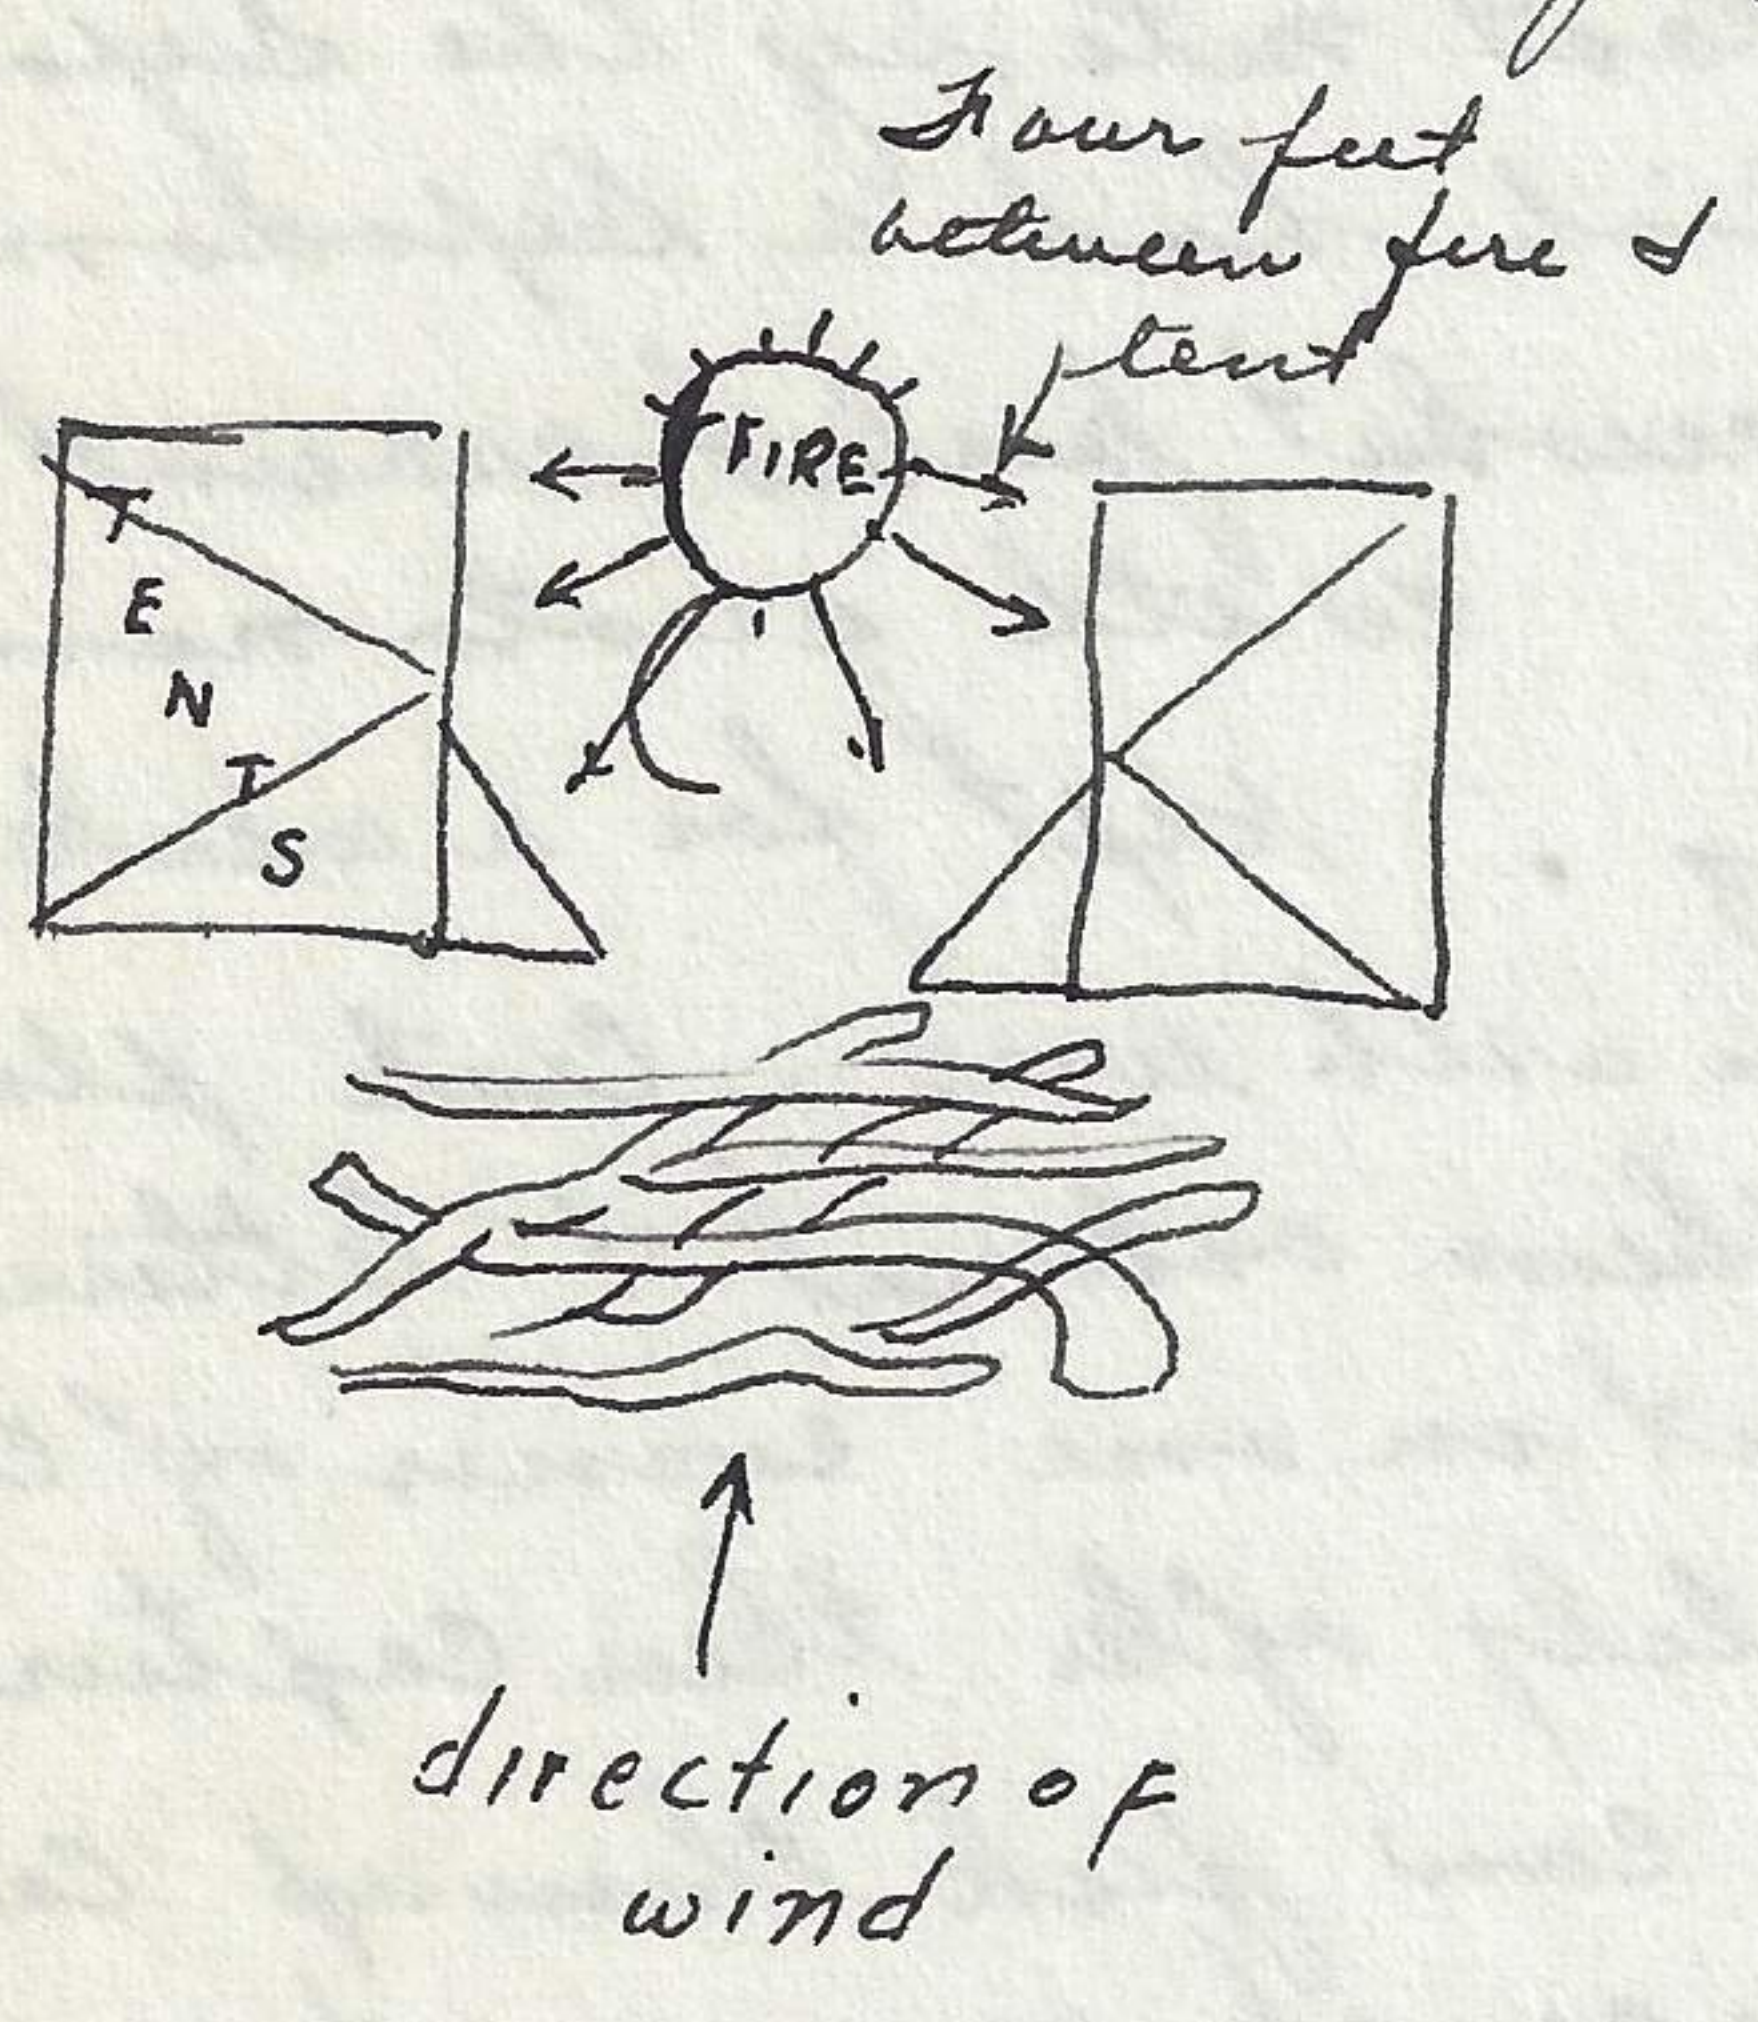 Four feet
between fire &
tent
FIRE
TENTS
direction of
wind